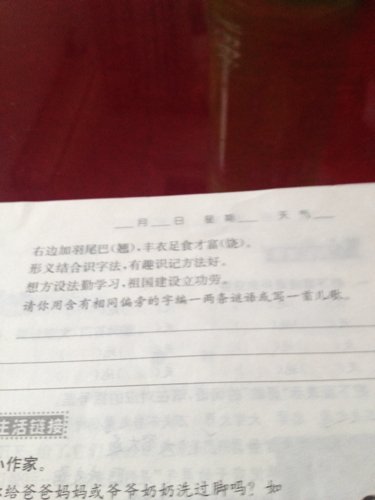 月 日 星期 天气
右边加羽尾巴(翘),丰衣足食才富(饶)。
形义结合识字法,有趣识记方法好。
想方设法勤学习,祖国建设立功劳。
请你用含有相同偏旁的字编一两条谜语或写一首儿歌。
生活链接
小作家。
你给爸爸妈妈或爷爷奶奶洗过脚吗?如